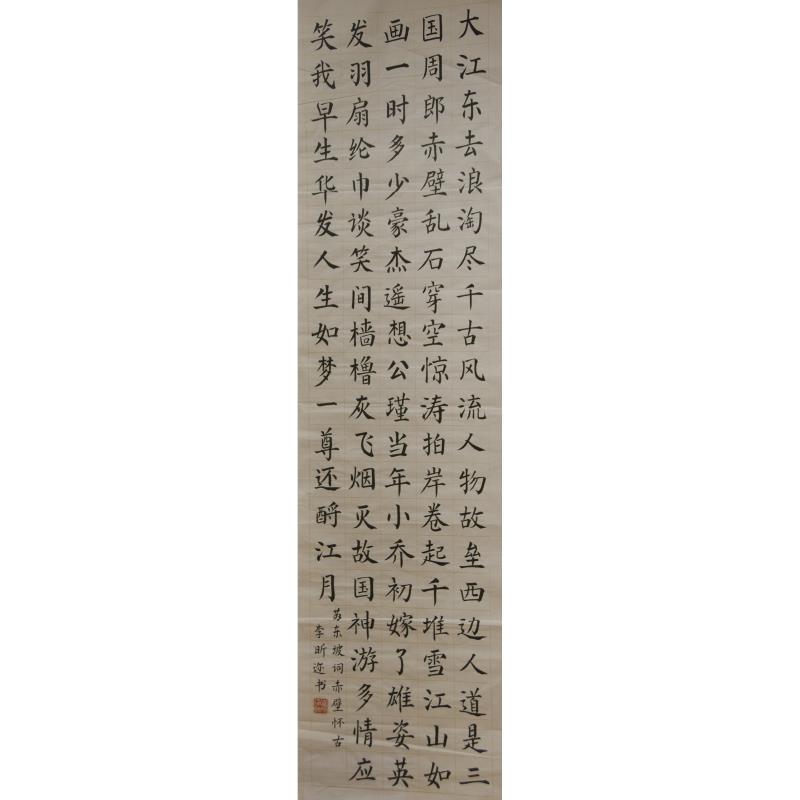 大江东去浪淘尽千古风流人物故垒西边人道是三
国周郎赤壁乱石穿空惊涛拍岸卷起千堆雪江山如
画一时多少豪杰遥想公瑾当年小乔初嫁了雄姿英
发羽扇纶巾谈笑间樯橹灰飞烟灭故国神游多情应
笑我早生华发人生如梦一尊还酹江月
苏东坡词赤壁怀古
李昕迩书